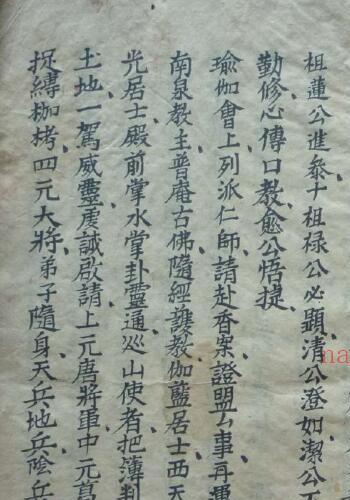 祖蓮公進參十祖禄公必顯清公澄如潔公
勤修心傳口教愈公悟提
瑜伽會上列派仁師請赴香案證盟公事再運
南泉教主普庵古佛隨經護教伽藍居士西天
光居士殿前掌水掌卦靈通巡山使者把薄判
土地一駕威靈虔誠啟請上元唐將軍中元葛
捉縛枷拷四元大將弟子隨身天兵地兵陰兵
na